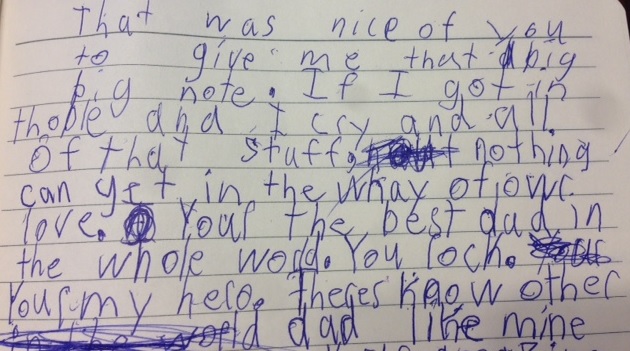 That was nice of you
to give me that big
big note. If I got in
thoble and I cry and all
of that stuff. nothing
can get in the whay of owr
love. Your the best dad in
the whole word. You rock.
Your my hero. theres know other
in the world dad like mine